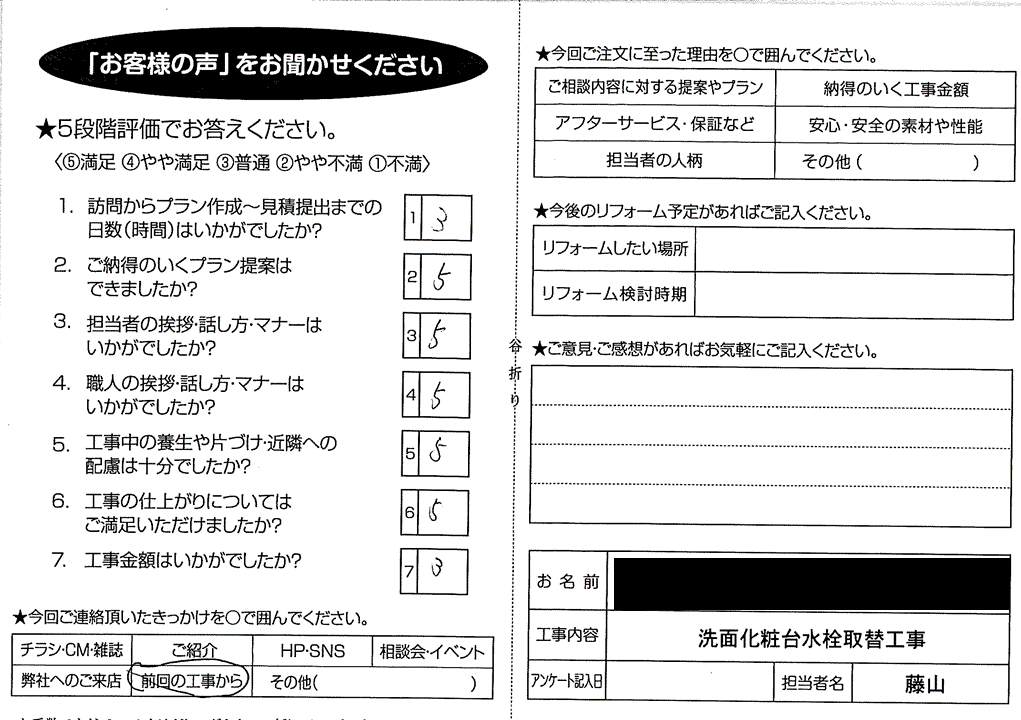 「お客様の声」をお聞かせください
★5段階評価でお答えください。
〈⑤満足 ④やや満足 ③普通 ②やや不満 ①不満〉
1. 訪問からプラン作成～見積提出までの
日数(時間)はいかがでしたか?
1 3
2. ご納得のいくプラン提案は
できましたか?
2 5
3. 担当者の挨拶・話し方・マナーは
いかがでしたか?
3 5
4. 職人の挨拶・話し方・マナーは
いかがでしたか?
4 5
5. 工事中の養生や片づけ・近隣への
配慮は十分でしたか?
5 5
6. 工事の仕上がりについては
ご満足いただけましたか?
6 5
7. 工事金額はいかがでしたか?
7 3
★今回ご連絡頂いたきっかけを〇で囲んでください。
チラシ・CM・雑誌 ご紹介 HP・SNS 相談会・イベント
弊社へのご来店 前回の工事から その他( )
谷折り
★今回ご注文に至った理由を〇で囲んでください。
ご相談内容に対する提案やプラン 納得のいく工事金額
アフターサービス・保証など 安心・安全の素材や性能
担当者の人柄 その他( )
★今後のリフォーム予定があればご記入ください。
リフォームしたい場所
リフォーム検討時期
★ご意見・ご感想があればお気軽にご記入ください。
お名前
工事内容 洗面化粧台水栓取替工事
アンケート記入日 担当者名 藤山